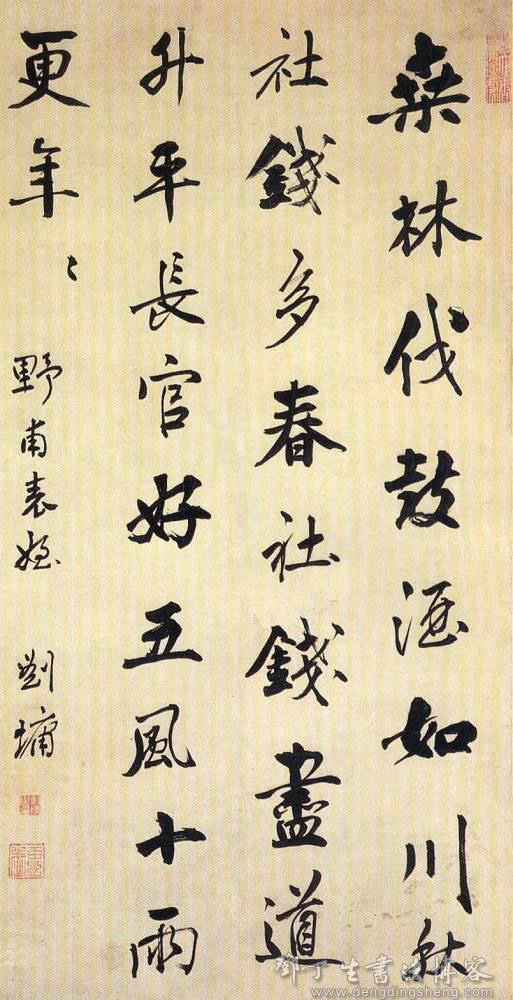 桒林伐鼓酒如川秋
社錢多春社錢盡道
升平長官好五風十雨
更年〻 野甫表姪 劉墉
鄧丁生書法博客
www.dengdingsheng.com